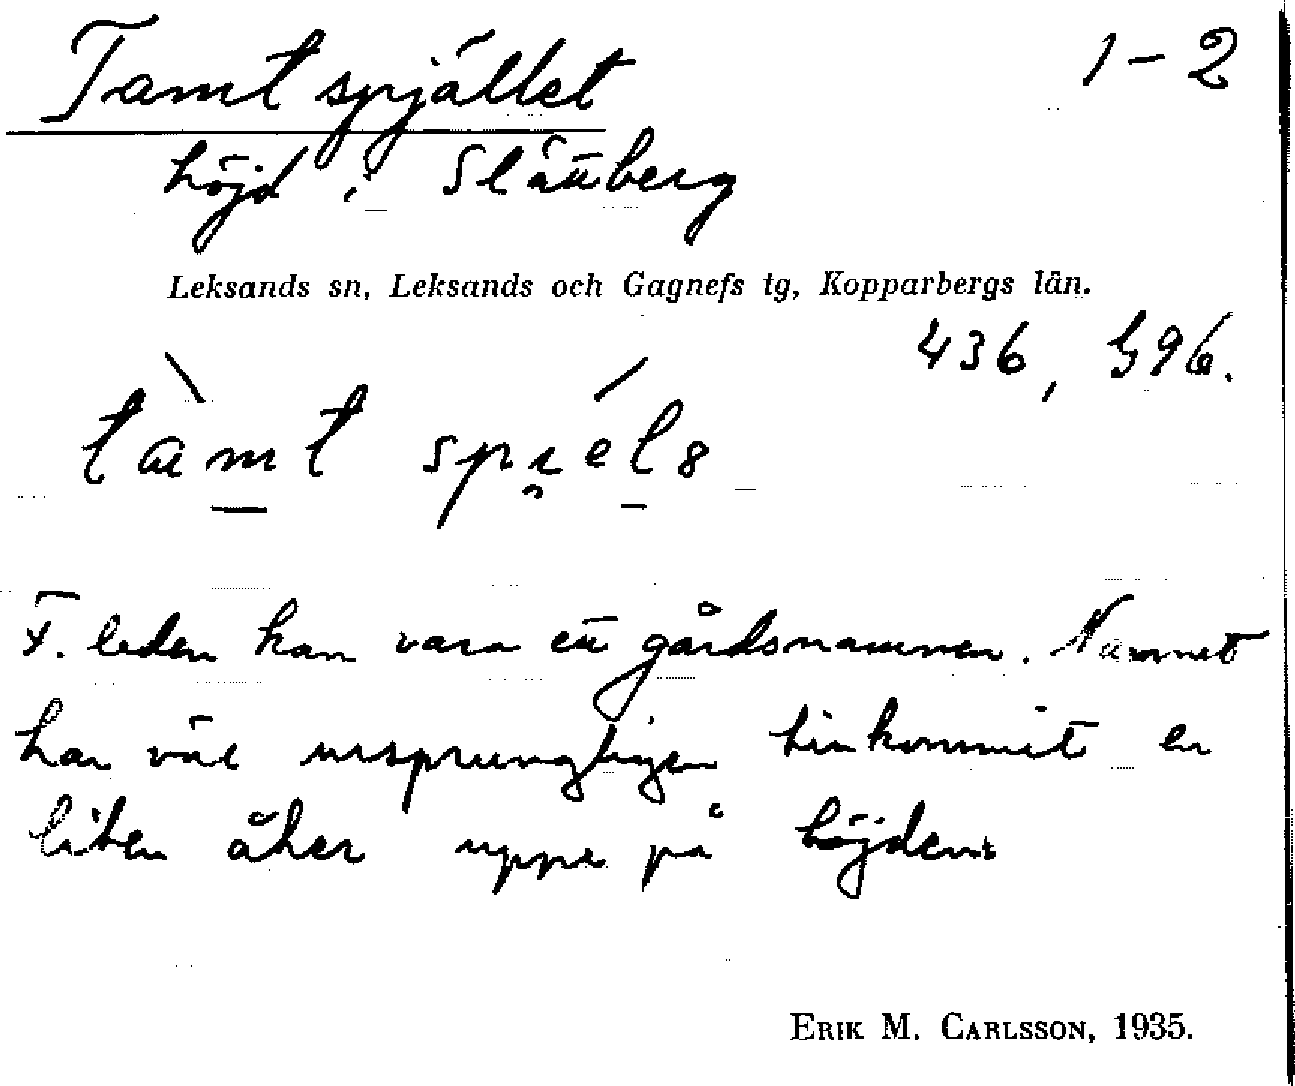 Tamtspjället 1-2
höjd i Slättberg
Leksands sn, Leksands och Gagnefs tg, Kopparbergs län.
436, 596.
F. leden kan vara ett gårdsnamnen. Namnet
har väl ursprungligen tillkommit en
liten åker uppe på höjden.
ERIK M. CARLSSON, 1935.